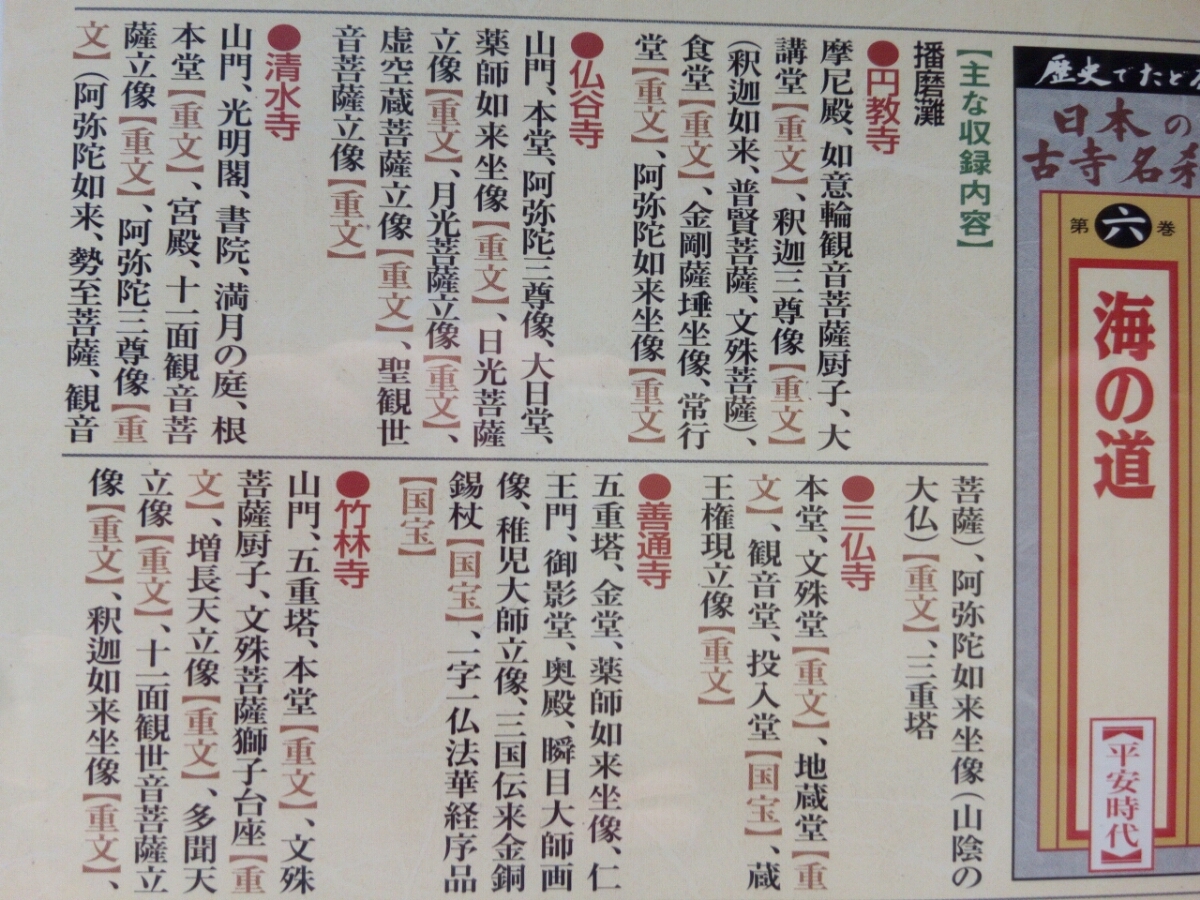 歴史でたど
日本の
古寺名
第六巻
海の道
【平安時代】
【主な収録内容】
播磨灘
●円教寺
摩尼殿、如意輪観音菩薩厨子、大
講堂【重文】、釈迦三尊像【重文】
(釈迦如来、普賢菩薩、文殊菩薩)、
食堂【重文】、金剛薩埵坐像、常行
堂【重文】、阿弥陀如来坐像【重文】
●仏谷寺
山門、本堂、阿弥陀三尊像、大日堂、
薬師如来坐像【重文】、日光菩薩
立像【重文】、月光菩薩立像【重文】、
虚空蔵菩薩立像【重文】、聖観世
音菩薩立像【重文】
●清水寺
山門、光明閣、書院、満月の庭、根
本堂【重文】、宮殿、十一面観音菩
薩立像【重文】、阿弥陀三尊像【重
文】(阿弥陀如来、勢至菩薩、観音
菩薩)、阿弥陀如来坐像(山陰の
大仏)【重文】、三重塔
●三仏寺
本堂、文殊堂【重文】、地蔵堂【重
文】、観音堂、投入堂【国宝】、蔵
王権現立像【重文】
●善通寺
五重塔、金堂、薬師如来坐像、仁
王門、御影堂、奥殿、瞬目大師画
像、稚児大師立像、三国伝来金銅
錫杖【国宝】、一字一仏法華経序品
【国宝】
●竹林寺
山門、五重塔、本堂【重文】、文殊
菩薩厨子、文殊菩薩獅子台座【重
文】、増長天立像【重文】、多聞天
立像【重文】、十一面観世音菩薩立
像【重文】、釈迦如来坐像【重文】、